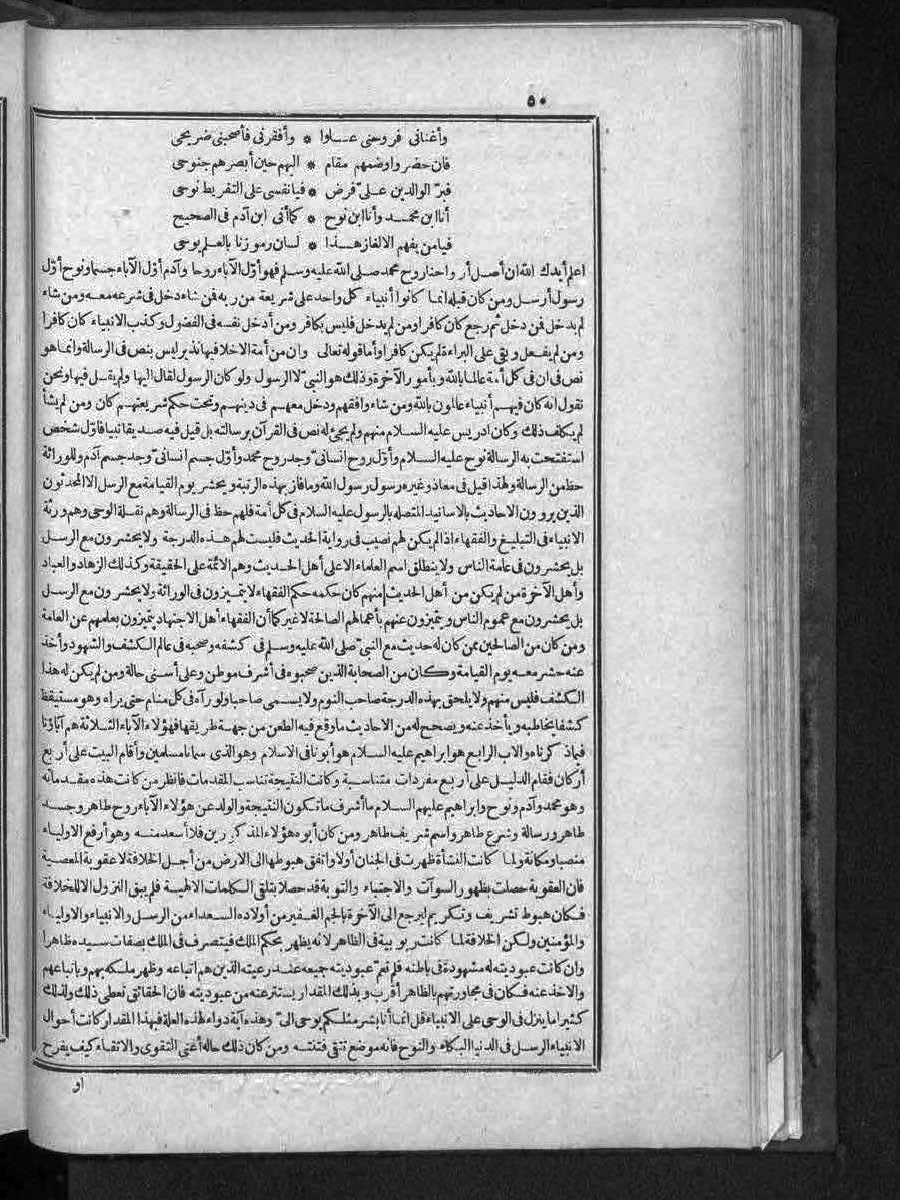 ٥٠
وأغنانى فروحنى عـــاوا * وأفقرنى فأصحبنى ضريحى
فان حضر واوضمهم مقام * اليهم حين أبصرهم جنوحى
فبرّ الوالدين علىّ فرض * فيانفسى على التفريط نوحى
أنا ابن محمد وأنا ابن نوح * كما أنى ابن آدم فى الصحيح
فيامن يفهم الالغاز هـذا * لسان رموزنا بالعلم يوحى
اعلم أيدك الله ان أصل أر واحنا روح محمد صلى الله عليه وسلم فهو أوّل الآباء روحا وآدم أوّل الآباء جسما ونوح أوّل
رسول أرسل ومن كان قبله انما كانوا أنبياء كل واحد على شريعة من ربه فمن شاء دخل فى شرعه معه ومن شاء
لم يدخل فمن دخل ثم رجع كان كافرا ومن لم يدخل فليس بكافر ومن أدخل نفسه فى الفضول وكذب الانبياء كان كافرا
ومن لم يفعل وبقى على البراءة لم يكن كافرا وأما قوله تعالى وان من أمة الاخلا فيها نذير ليس بنص فى الرسالة وانما هو
نص فى ان فى كل أمة عالما بالله وبأمور الآخرة وذلك هو النبىّ لا الرسول ولو كان الرسول لقال اليها ولم يقل فيها ونحن
نقول انه كان فيهم أنبياء عالمون بالله ومن شاء وافقهم ودخل معهم فى دينهم وتحت حكم شريعتهم كان ومن لم يشأ
لم يكلف ذلك وكان ادريس عليه السلام منهم ولم يجئ له نص فى القرآن برسالته بل قيل فيه صديقا نبيا فأوّل شخص
استفتحت به الرسالة نوح عليه السلام وأوّل روح انسانىّ وجد روح محمد وأوّل جسم انسانىّ وجد جسم آدم وللوراثة
حظ من الرسالة ولهذا قيل فى معاذ وغيره رسول رسول الله وما فاز بهذه الرتبة ويحشر يوم القيامة مع الرسل الا المحدثون
الذين يروون الاحاديث بالاسانيد المتصلة بالرسول عليه السلام فى كل أمة فلهم حظ فى الرسالة وهم نقلة الوحى وهم ورثة
الانبياء فى التبليغ والفقهاء اذا لم يكن لهم نصيب فى رواية الحديث فليست لهم هذه الدرجة ولا يحشرون مع الرسل
بل يحشرون فى عامة الناس ولا ينطلق اسم العلماء الا على أهل الحديث وهم الائمة على الحقيقة وكذلك الزهاد والعباد
وأهل الآخرة من لم يكن من أهل الحديث منهم كان حكمه حكم الفقهاء لا يتميزون فى الوراثة ولا يحشرون مع الرسل
بل يحشرون مع عموم الناس ويتميزون عنهم بأعمالهم الصالحة لا غير كما أن الفقهاء أهل الاجتهاد يتميزون بعلمهم عن العامة
ومن كان من الصالحين ممن كان له حديث مع النبىّ صلى الله عليه وسلم فى كشفه وصحبه فى عالم الكشف والشهود وأخذ
عنه حشر معه يوم القيامة وكان من الصحابة الذين صحبوه فى أشرف موطن وعلى أسنى حالة ومن لم يكن له هذا
الكشف فليس منهم ولا يلحق بهذه الدرجة صاحب النوم ولا يسمى صاحبا ولو رآه فى كل منام حتى يراه وهو مستيقظ
كشفا يخاطبه ويأخذ عنه ويصحح له من الاحاديث ما وقع فيه الطعن من جهة طريقها فهؤلاء الآباء الثلاثة هم آباؤنا
فيما ذكرناه والاب الرابع هو ابراهيم عليه السلام هو أبونا فى الاسلام وهو الذى سمانا مسلمين وأقام البيت على أربع
أركان فقام الدليل على أربع مفردات متناسبة وكانت النتيجة تناسب المقدمات فانظر من كانت هذه مقدماته
وهو محمد وآدم ونوح وابراهيم عليهم السلام ما أشرف ما تكون النتيجة والولد عن هؤلاء الآباء روح طاهر وجسد
طاهر ورسالة وشرع طاهر واسم شريف طاهر ومن كان أبوه هؤلاء المذكورين فلا أسعد منه وهو أرفع الاولياء
منصبا ومكانة ولما كانت النشأة ظهرت فى الجنان أولا واتفق هبوطها الى الارض من أجل الخلافة لا عقوبة المعصية
فان العقوبة حصلت بظهور السوآت والاجتباء والتوبة قد حصلا بتلقى الكلمات الالهية فلم يبق النزول الا للخلافة
فكان هبوط تشريف وتكريم ليرجع الى الآخرة بالجم الغفير من أولاده السعداء من الرسل والانبياء والاولياء
والمؤمنين ولكن الخلافة لما كانت ربوبية فى الظاهر لانه يظهر بحكم الملك فيتصرف فى الملك بصفات سيده ظاهرا
وان كانت عبوديته له مشهودة فى باطنه فلم تعمّ عبوديته جميعه عند رعيته الذين هم أتباعه وظهر ملكه بهم وباتباعهم
والاخذ عنه فكان فى مجاورتهم بالظاهر أقرب وبذلك المقدار يستتر عنه من عبوديته فان الحقائق تعطى ذلك ولذلك
كثيرا ما ينزل فى الوحى على الانبياء قل انما أنا بشر مثلكم يوحى الىّ وهذه آية دواء لهذه العلة فبهذا المقدار كانت أحوال
الانبياء الرسل فى الدنيا البكاء والنوح فانه موضع تتقى فتنته ومن كان ذلك حاله أعنى التقوى والاتقاء كيف يفرح
أو